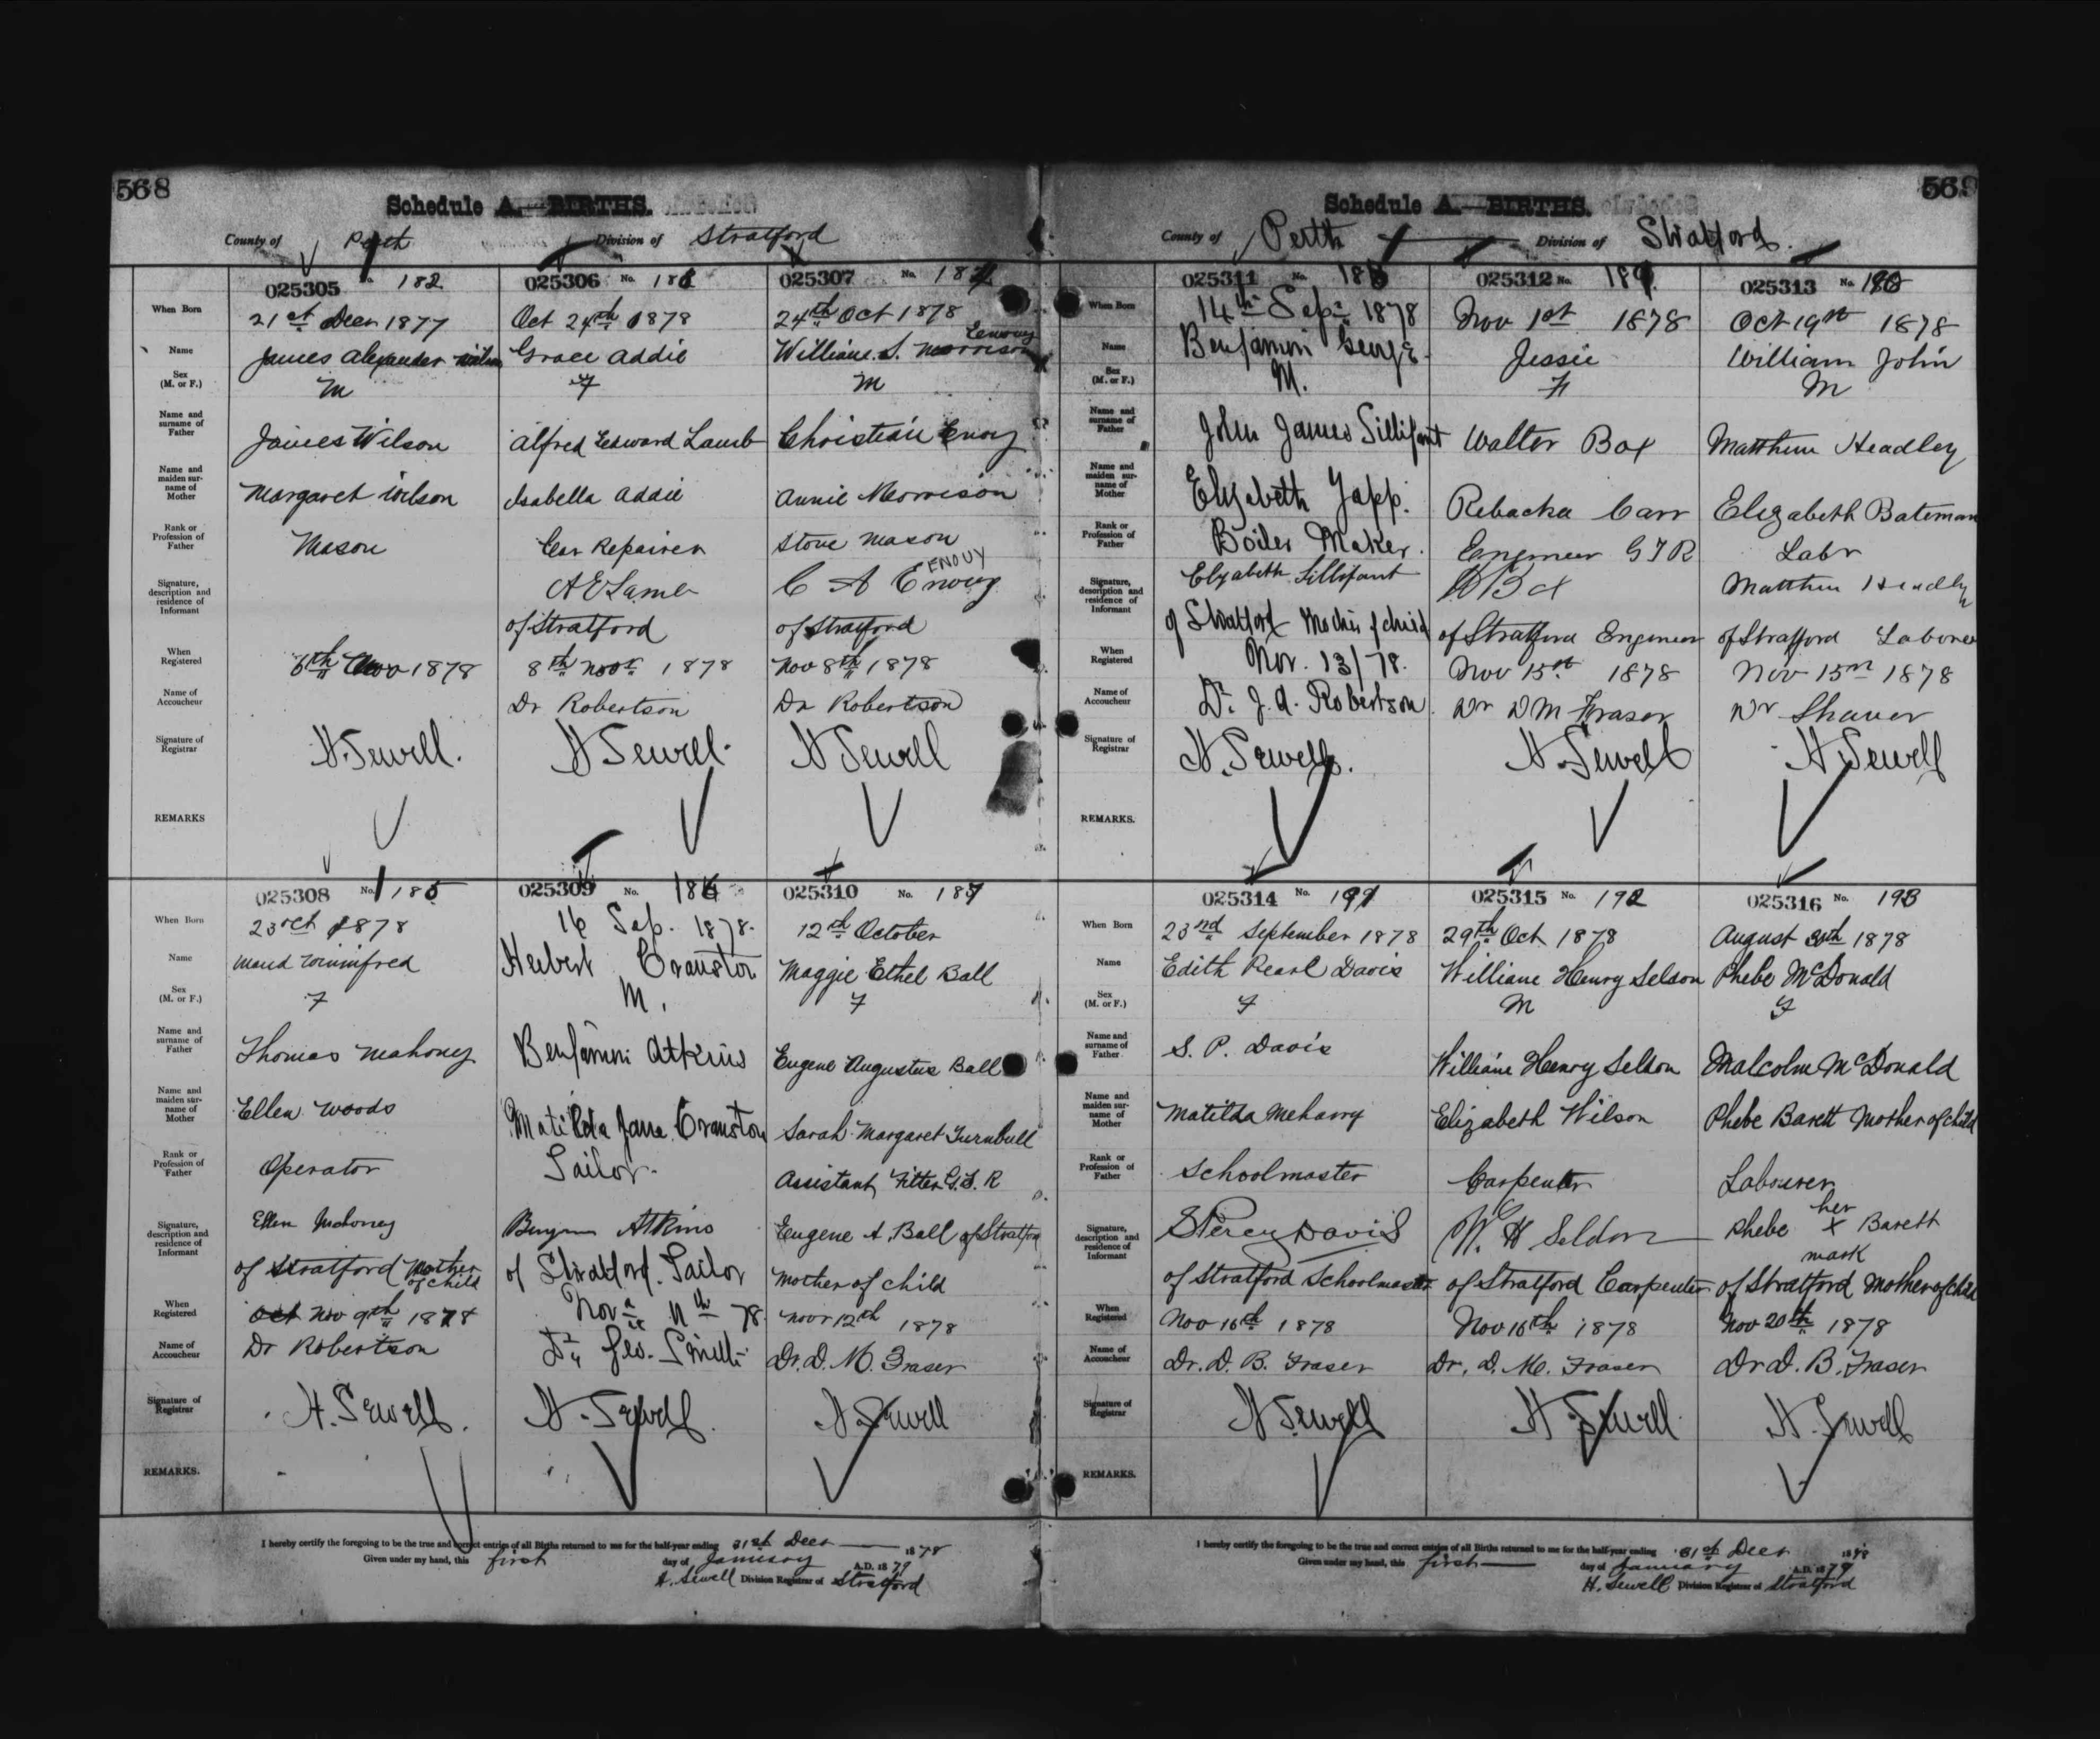 568
Schedule A.—BIRTHS.
County of Perth Division of Stratford
025305 No. 182
When Born 21st Decr 1877
Name James Alexander Wilson
Sex (M. or F.) M
Name and surname of Father James Wilson
Name and maiden surname of Mother Margaret Wilson
Rank or Profession of Father Mason
Signature, description and residence of Informant
When Registered 6th Nov 1878
Name of Accoucheur
Signature of Registrar H. Sewell.
REMARKS
025306 No. 183
Oct 24th 1878
Grace Addie
F
Alfred Edward Lamb
Isabella Addie
Car Repairer
A E Lamb
of Stratford
8th Novr 1878
Dr Robertson
H Sewell.
025307 No. 184
24th Oct 1878
Enouy
William S. Morrison
M
Christian Enouy
Annie Morrison
Stone Mason
ENOUY
C A Enouy
of Stratford
Nov 8th 1878
Dr Robertson
H Sewell
025308 No. 185
When Born 23 Oct 1878
Name Maud Winnifred
Sex (M. or F.) F
Name and surname of Father Thomas Mahoney
Name and maiden surname of Mother Ellen Woods
Rank or Profession of Father Operator
Signature, description and residence of Informant Ellen Mahoney
of Stratford Mother of child
When Registered Oct Nov 9th 1878
Name of Accoucheur Dr Robertson
Signature of Registrar H. Sewell.
REMARKS.
025309 No. 186
16 Sep. 1878.
Herbert Cranston
M.
Benjamin Atkins
Matilda Jane Cranston
Tailor.
Benjmn Atkins
of Stratford. Tailor
Nov 11th 78.
Dr Geo. Smith
H. Sewell.
025310 No. 187
12th October
Maggie Ethel Ball
F
Eugene Augustus Ball
Sarah Margaret Turnbull
Assistant Fitter G.T.R
Eugene A. Ball of Stratford
Mother of child
Novr 12th 1878
Dr. D. M. Fraser
H. Sewell
I hereby certify the foregoing to be the true and correct entries of all Births returned to me for the half-year ending 31st Decr 1878
Given under my hand, this first day of January A.D. 1879
H. Sewell Division Registrar of Stratford
569
Schedule A.—BIRTHS.
County of Perth Division of Stratford.
025311 No. 188
When Born 14th Sep. 1878
Name Benjamin George.
Sex (M. or F.) M.
Name and surname of Father John James Sillifant
Name and maiden surname of Mother Elizabeth Yapp.
Rank or Profession of Father Boiler Maker.
Signature, description and residence of Informant Elizabeth Sillifant
of Stratford Mother of child
When Registered Nov. 13/78.
Name of Accoucheur Dr. J. A. Robertson
Signature of Registrar H. Sewell.
REMARKS.
025312 No. 189
Nov 1st 1878
Jessie
F
Walter Box
Rebacka Carr
Engineer G T R
W Box
of Stratford Engineer
Nov 15st 1878
Dr D M Fraser
H. Sewell
025313 No. 190
Oct 19th 1878
William John
M
Matthew Headley
Elizabeth Bateman
Labr
Matthew Headly
of Stratford Laborer
Nov 15th 1878
Dr Shaver
H Sewell
025314 No. 191
When Born 23nd September 1878
Name Edith Pearl Davis
Sex (M. or F.) F
Name and surname of Father S. P. Davis
Name and maiden surname of Mother Matilda Meharry
Rank or Profession of Father Schoolmaster
Signature, description and residence of Informant S Percy Davis
of Stratford Schoolmaster
When Registered Nov 16th 1878
Name of Accoucheur Dr. D. B. Fraser
Signature of Registrar H Sewell
REMARKS.
025315 No. 192
29th Oct 1878
William Henry Seldon
M
William Henry Seldon
Elizabeth Wilson
Carpenter
W. H Seldon
of Stratford Carpenter
Nov 16th 1878
Dr. D. M. Fraser
H Sewell
025316 No. 193
August 30th 1878
Phebe McDonald
F
Malcolm McDonald
Phebe Barett Mother of child
Labourer
her
Phebe X Barett
mark
of Stratford Mother of child
Nov 20th 1878
Dr D. B. Fraser
H. Sewell
I hereby certify the foregoing to be the true and correct entries of all Births returned to me for the half-year ending 31st Decr 1878
Given under my hand, this first day of January A.D. 1879
H. Sewell Division Registrar of Stratford